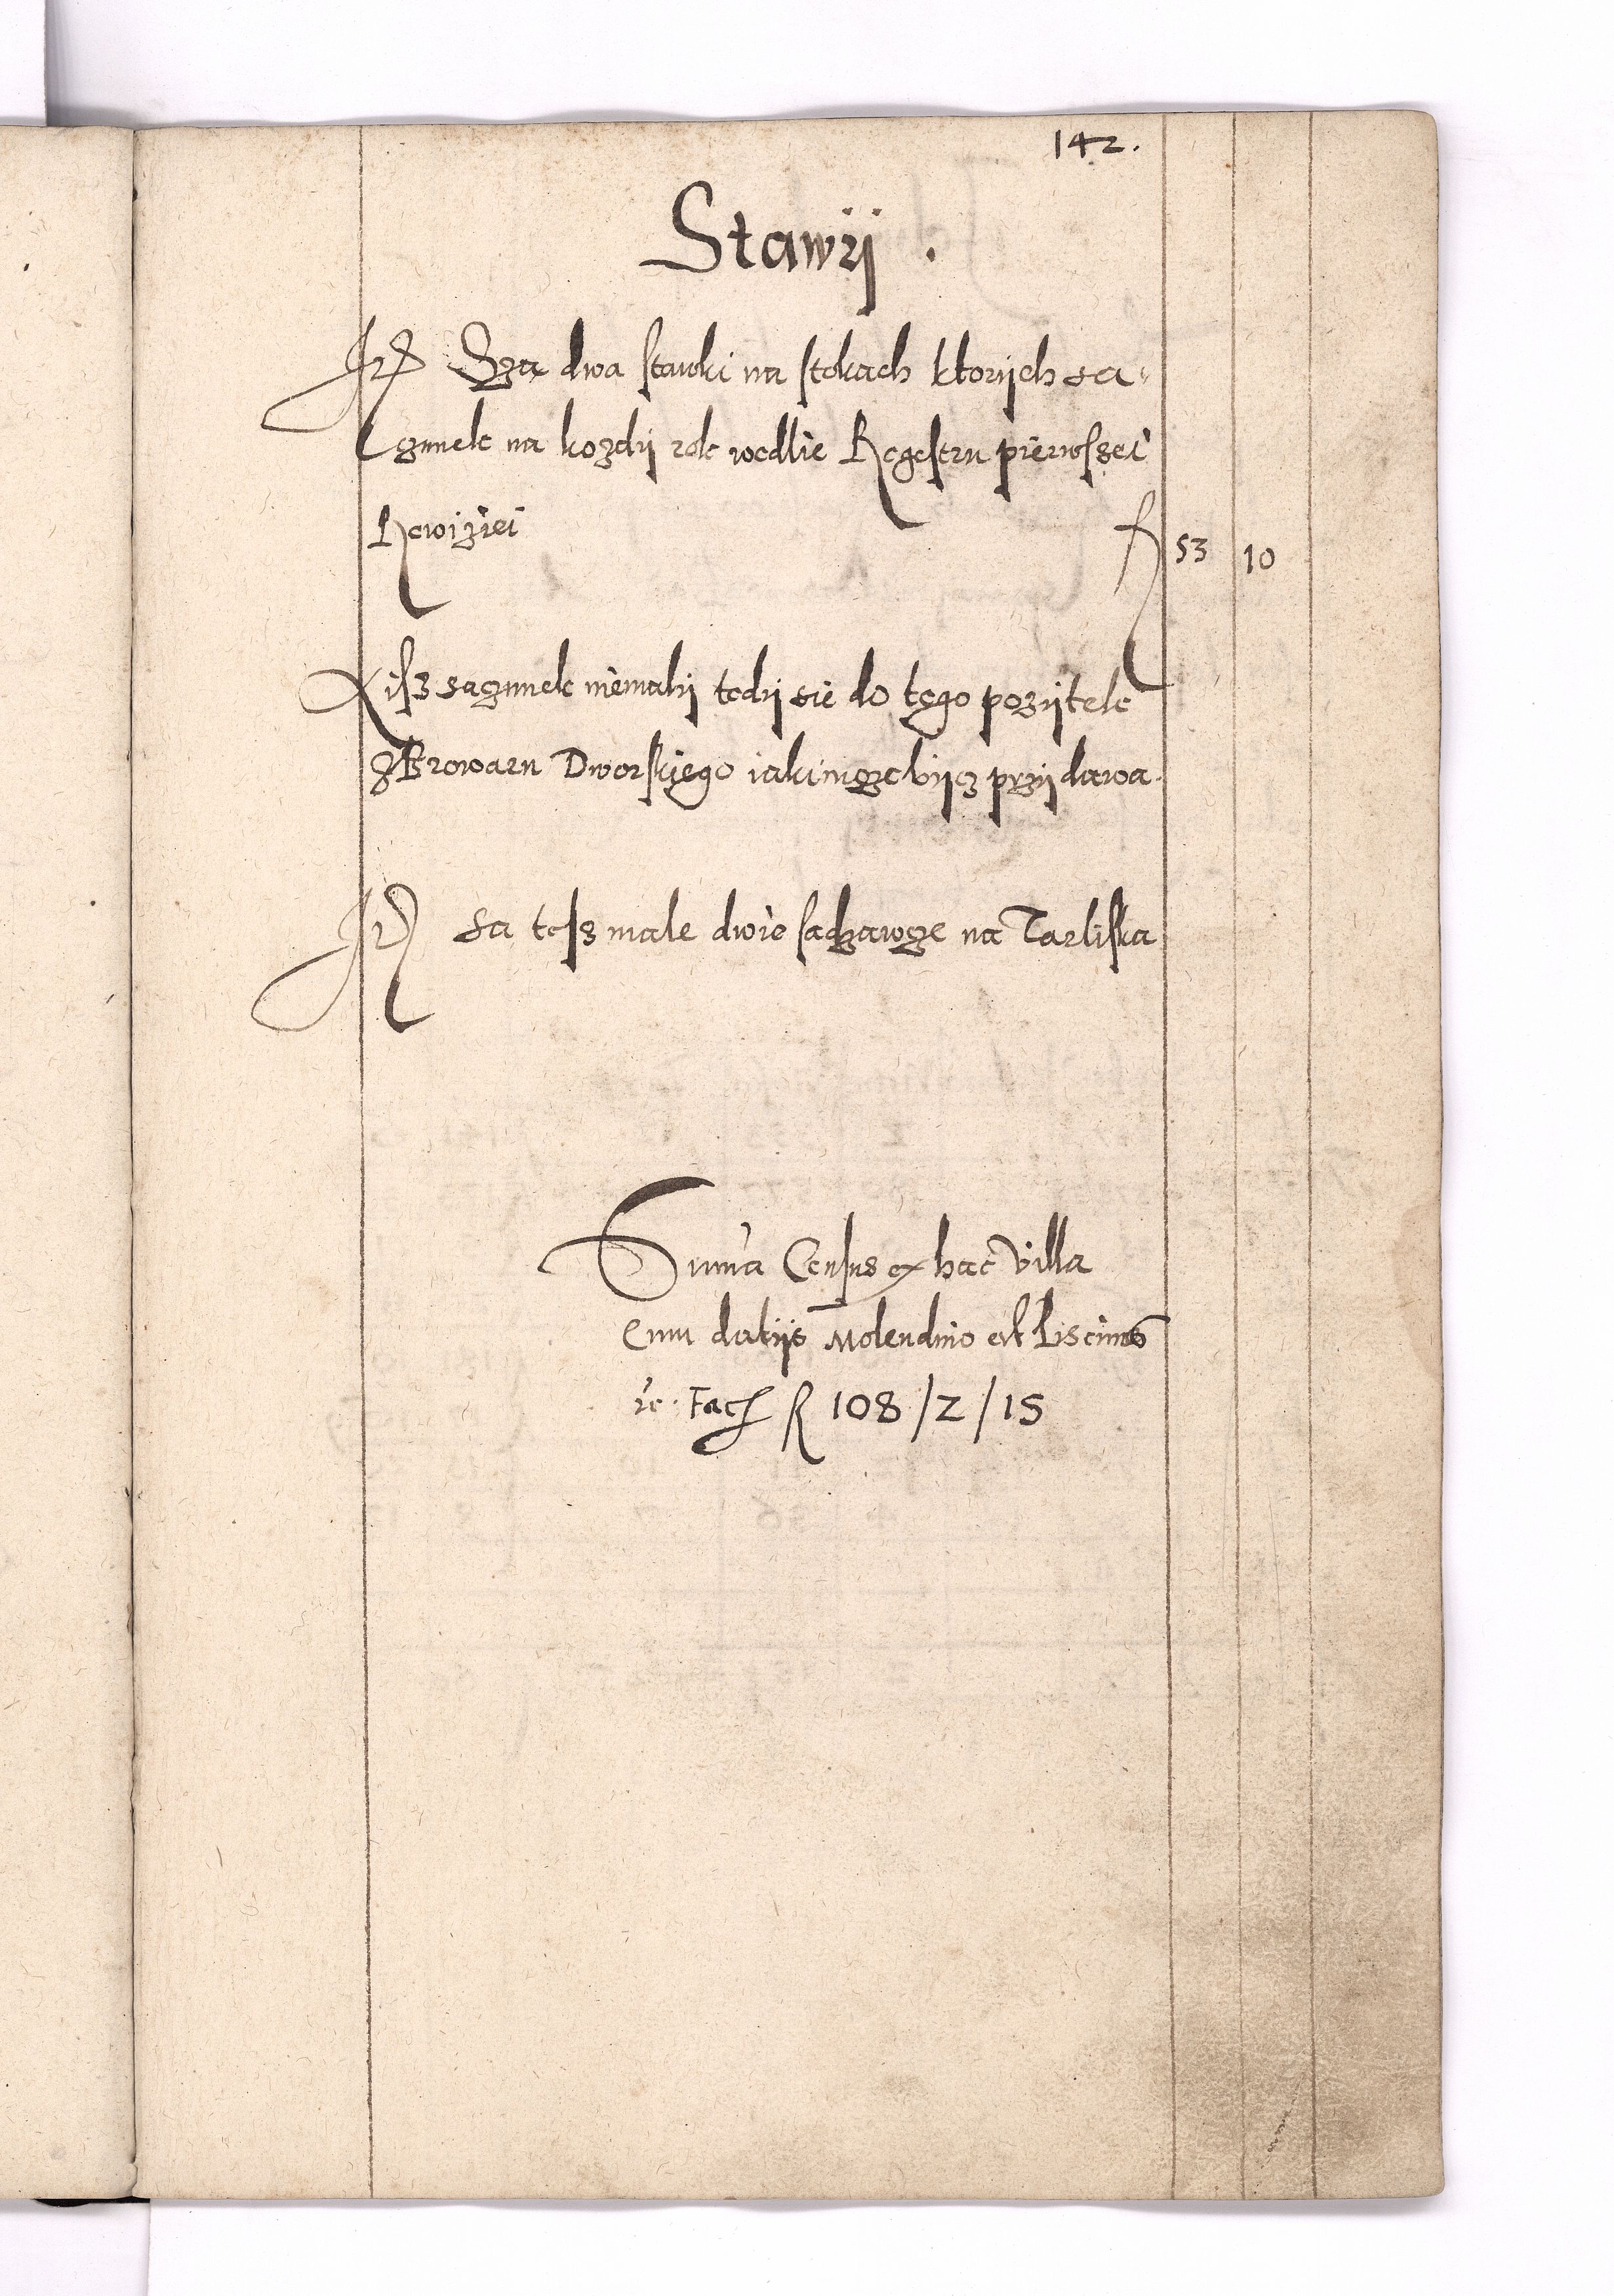 142.
Stawÿ .
Itē Sza dwa stawki na stokach ktorÿch sza-
cgunek na kozdÿ rok wedlie Regestru pierwszei
Rewiziei R 53 10
A isz szacgunek niemalÿ tedÿ sie do tego pozÿtek
z Browaru Dworskiego iakimzebÿcz przÿdawa.
Itē sa tesz male dwie sadzawcze na Tarliska
Sum̃a Census ex hac Villa
Cum datijs Molendino et Piscinis
rc. Facit R 108 / 2 / 15